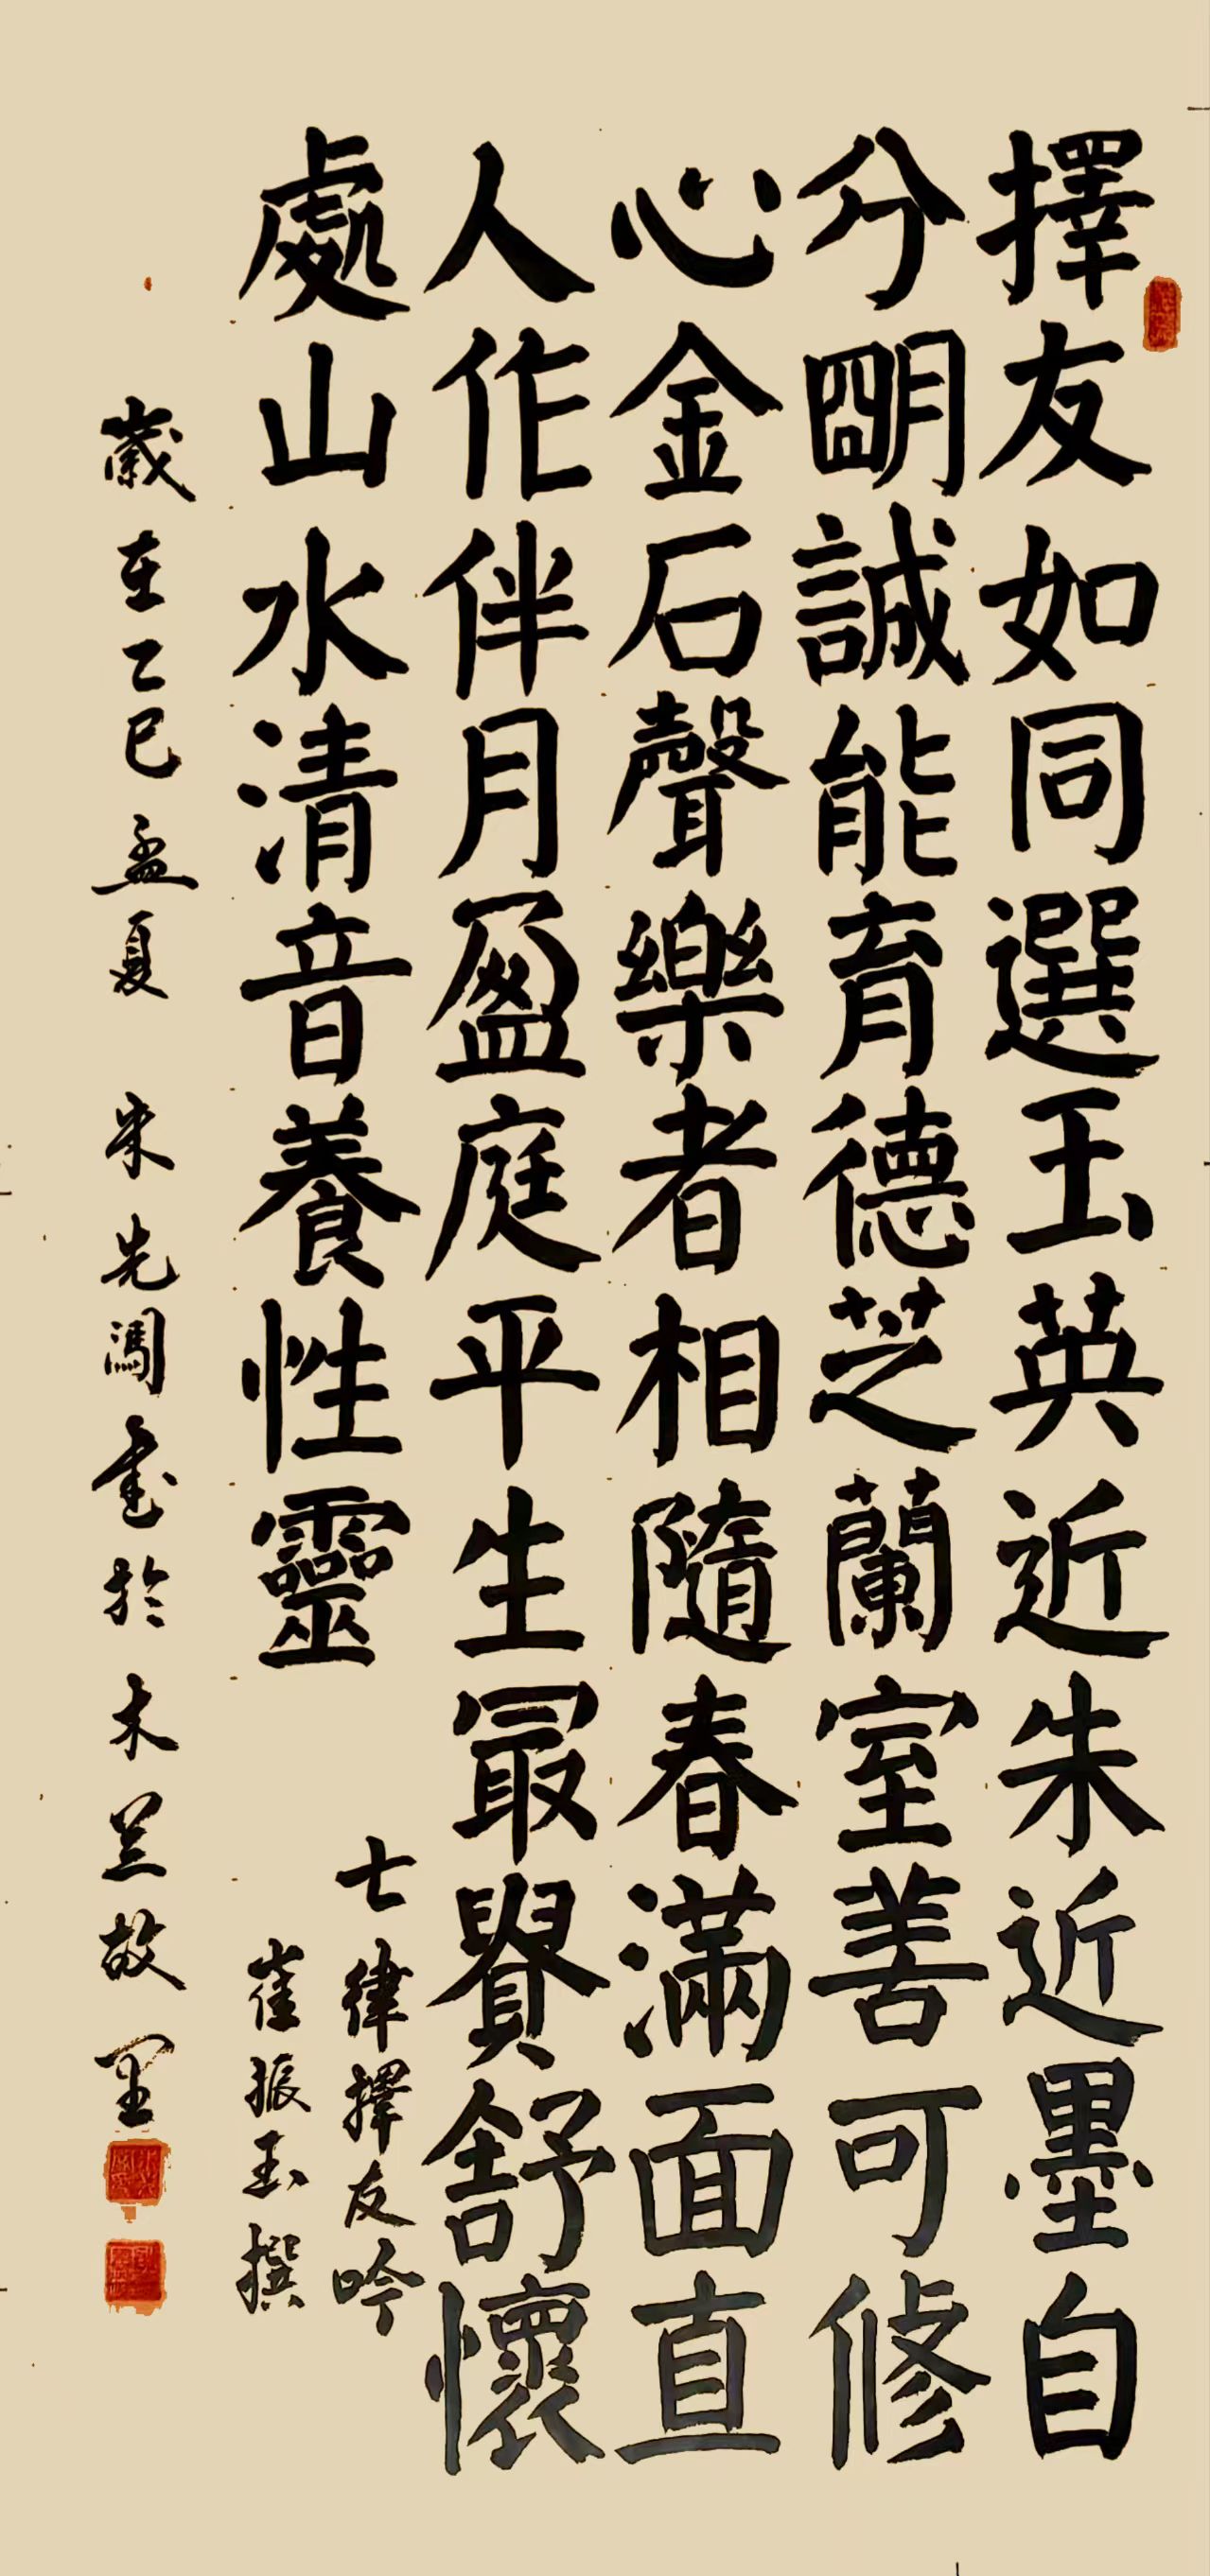 擇友如同選玉英近朱近墨自
分朙誠能育德芝蘭室善可修
心金石聲樂者相隨春滿面直
人作伴月盈庭平生冣賞舒懷
處山水清音養性靈
七律擇友吟
崔振玉撰
歲在乙巳孟夏 朱先闖書於木兰故里